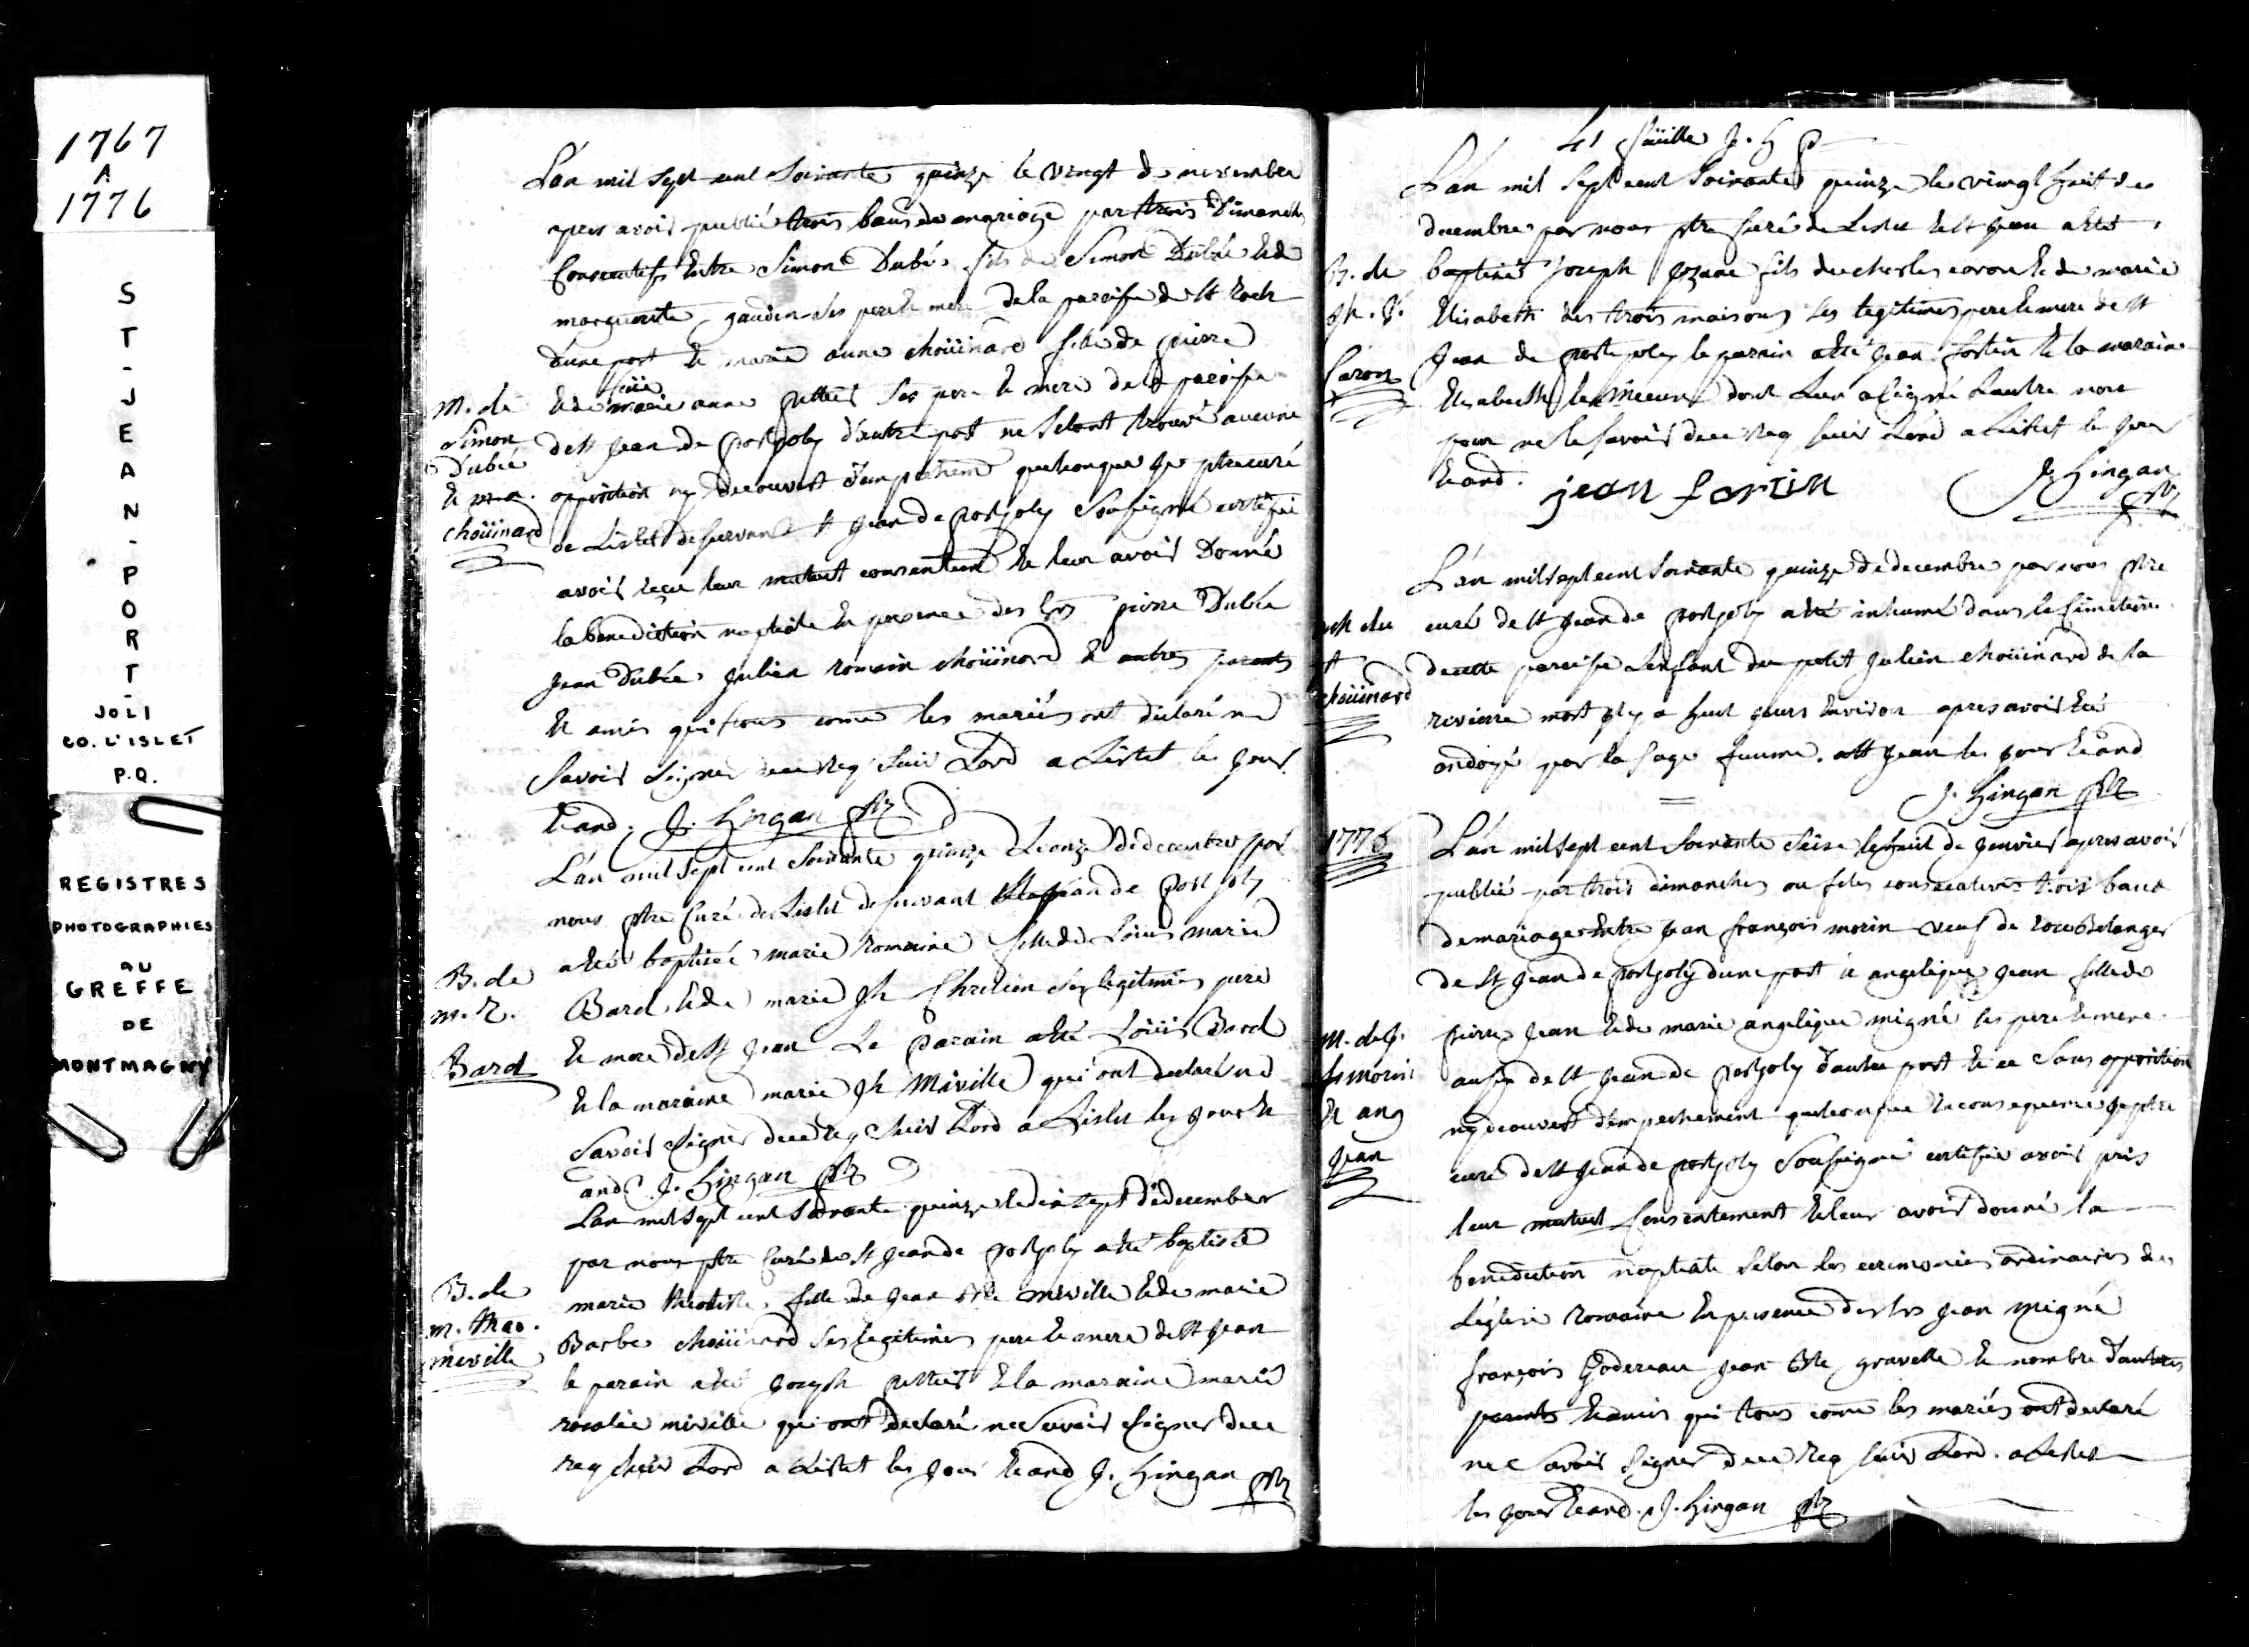 1767
A
1776
ST-JEAN-PORT-
JOLI
CO. L'ISLET
P.Q.
REGISTRES
PHOTOGRAPHIES
AU
GREFFE
DE
MONTMAGNY
L'án mil sept cent soixante quinze le vingt de novembre
apres avoir publié trois bans de mariage par trois Dimanches
Consecutifs Entre Simon Dubé fils de Simon Dubée et de
marguerite gaudin ses pere et mere de la paroisse de st Roch
d'une part et marie anne choüinard fille de pierre
M. de
Simon
Dubée
et m.a.
choüinard
et de marie anne ses pere et mere de la paroisse
de st jean de portjoly d'autre part ne s'etant trouvé aucune
opposition ny decouvert d'empechem quelconque je ptre curé
de Lislet desservant st jean de portjoly Soussigné certifie
avoir reçu leur mutuel consentem et leur avoir Donné
la benediction nuptiale En presence des Srs pierre Dubée
jean Dubée julien romain choüinard et autres parents
et amis qui tous come les mariés ont declaré ne
Savoir Signer de ce req suiv Lord a Lislet les jour
et and. J. Hingan ptr
L'án mil sept cent soixante quinze Le onze de decembre par
nous ptre Curé de Lislet desservant st jean de port joly
B. de
m. r.
Bard
a été baptisée marie romaine fille de Loüis marie
Bard et de marie jh Chretien ses legitimes pere
et mere de st jean Le Parain a été Loüis Bard
et la maraine marie jh Miville qui ont declaré ne
Savoir Signer de ce req suiv Lord a Lislet les jour et
and J. Hingan ptr
L'an mil sept cent soixante quinze le dix sept de decembre
par nous ptre Curé de st jean de portjoly a été baptisée
B. de
m. theo.
miville
marie theotiste fille de jean Bte miville et de marie
Barbe choüinard ses legitimes pere et mere de st jean
le parain a été joseph et la maraine marie
rosalie miville qui ont declaré ne Savoir Signer de ce
req suiv Lord a Lislet les jour et and J. Hingan ptr
41 feüille J. H p
L'án mil sept cent soixante quinze le vingt huit de
decembre par nous ptre Curé de Lislet et st jean a été
B. de
jh. J.
Caron
baptisé joseph fils de charles caron et de marie
Elisabeth des trois maisons ses legitimes pere et mere de st
jean de port joly le parain a été jean fortin et la maraine
Elisabeth dont L'un a Signé L'autre non
pour ne le savoir de ce req suiv Lord a Lislet le jour
et and.
jean fortin
J. Hingan
ptr
L'án mil sept cent soixante quinze de decembre par nous ptre
curé de st jean de portjoly a été inhumé dans le Cimetiere
choüinard
de cette paroisse L'enfant du petit julien choüinard de la
riviere mort il y a huit jours Environ apres avoir été
ondoyé par la sage femme. a st jean les jour et and
J. Hingan ptr
1776
L'án mil sept cent soixante Seize le huit de janvier apres avoir
publié par trois dimanches ou fetes consecutives trois bans
de mariage Entre jean françois morin veuf de Belanger
de st jean de portjoly d'une part et angelique jean fille de
M. de j.
fs morin
et ang
jean
pierre jean et de marie angelique migné ses pere et mere
aussy de st jean de portjoly d'autre part et ce Sans opposition
ny decouvert d'empechement quelconque En consequence je ptre
curé de st jean de portjoly Soussigné certifie avoir pris
leur mutuel Consentement et leur avoir donné la
benediction nuptiale selon les ceremonies ordinaires de
L'eglise romaine En presence des Srs jean Migné
françois jean Bte gravelle et nombre d'autres
parents et amis qui tous come les mariés ont declaré
ne Savoir Signer de ce req suiv Lord. a Lislet
les jour et and. J. Hingan ptr